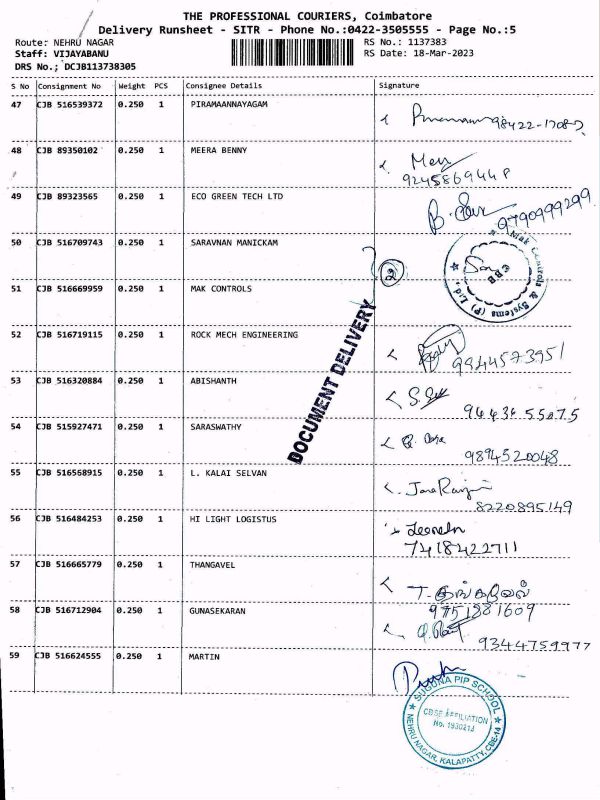 THE PROFESSIONAL COURIERS, Coimbatore
Delivery Runsheet - SITR - Phone No.:0422-3505555 - Page No.:5
Route: NEHRU NAGAR
RS No.: 1137383
Staff: VIJAYABANU
RS Date: 18-Mar-2023
DRS No.; DCJB113738305
S No Consignment No Weight PCS Consignee Details Signature
47 CJB 516539372 0.250 1 PIRAMAANNAYAGAM
98422-17087
48 CJB 89350102 0.250 1 MEERA BENNY
9245869448
49 CJB 89323565 0.250 1 ECO GREEN TECH LTD
9790999299
50 CJB 516709743 0.250 1 SARAVNAN MANICKAM
Mak Controls & Systems (P) Ltd.,
CBE
51 CJB 516669959 0.250 1 MAK CONTROLS
DOCUMENT DELIVERY
52 CJB 516719115 0.250 1 ROCK MECH ENGINEERING
9944573951
53 CJB 516320884 0.250 1 ABISHANTH
54 CJB 515927471 0.250 1 SARASWATHY
9894520048
55 CJB 516568915 0.250 1 L. KALAI SELVAN
8220895149
56 CJB 516484253 0.250 1 HI LIGHT LOGISTUS
7418422711
57 CJB 516665779 0.250 1 THANGAVEL
T. தங்கவேல்
9751881609
58 CJB 516712904 0.250 1 GUNASEKARAN
9344759977
59 CJB 516624555 0.250 1 MARTIN
SUGUNA PIP SCHOOL
CBSE AFFILIATION
No. 1930213
NEHRU NAGAR, KALAPATTY, CBE-14